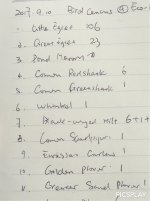 2017. 9. 10 Bird Census @ Eco-
1. Little Egret 106
2. Great Egret 23
3. Pond Heron
4. Common Redshank 6
5. Common Greenshank 1
6. Whimbrel 1
7. Black-winged stilt 6+1+
8. Common Sandpiper 1
9. Eurasian Curlew 1
10. Golden Plover 1
11. Greater Sand Plover 1
PICSPLAY